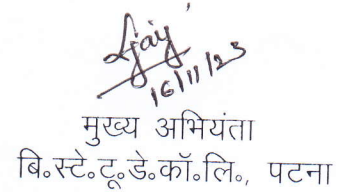 Ajay
16/11/23
मुख्य अभियंता
बि॰स्टे॰टू॰डे॰कॉ॰लि॰, पटना